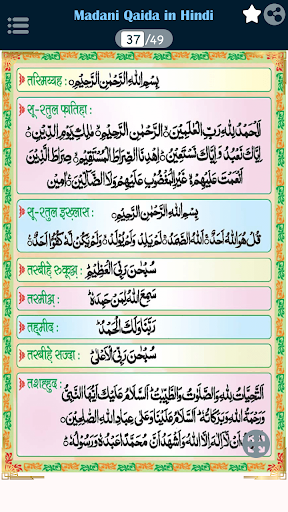 Madani Qaida in Hindi
37/49
तस्मिय्यह : بِسْمِ اللّٰهِ الرَّحْمٰنِ الرَّحِيْمِ ○
सू-रतुल फ़ातिहा :
اَلْحَمْدُ لِلّٰهِ رَبِّ الْعٰلَمِيْنَ ○ الرَّحْمٰنِ الرَّحِيْمِ ○ مٰلِكِ يَوْمِ الدِّيْنِ ○
اِيَّاكَ نَعْبُدُ وَ اِيَّاكَ نَسْتَعِيْنُ ○ اِهْدِنَا الصِّرَاطَ الْمُسْتَقِيْمَ ○ صِرَاطَ الَّذِيْنَ
اَنْعَمْتَ عَلَيْهِمْ ○ غَيْرِ الْمَغْضُوْبِ عَلَيْهِمْ وَلَا الضَّآلِّيْنَ ○ اٰمِيْن
सू-रतुल इख़्लास : بِسْمِ اللّٰهِ الرَّحْمٰنِ الرَّحِيْمِ ○
قُلْ هُوَ اللّٰهُ اَحَدٌ ○ اَللّٰهُ الصَّمَدُ ○ لَمْ يَلِدْ وَلَمْ يُوْلَدْ ○ وَلَمْ يَكُنْ لَّهٗ كُفُوًا اَحَدٌ ○
तस्बीहे रुकूअ़ : سُبْحٰنَ رَبِّيَ الْعَظِيْمِ ○
तस्मीअ़ : سَمِعَ اللّٰهُ لِمَنْ حَمِدَهٗ ○
तह़मीद : رَبَّنَا وَلَكَ الْحَمْدُ ○
तस्बीहे सज्दा : سُبْحٰنَ رَبِّيَ الْاَعْلٰى ○
तशह्हुद :
اَلتَّحِيَّاتُ لِلّٰهِ وَالصَّلَوٰتُ وَالطَّيِّبٰتُ ○ اَلسَّلَامُ عَلَيْكَ اَيُّهَا النَّبِيُّ
وَرَحْمَةُ اللّٰهِ وَبَرَكَاتُهٗ ○ اَلسَّلَامُ عَلَيْنَا وَعَلٰى عِبَادِ اللّٰهِ الصّٰلِحِيْنَ ○
اَنْ لَّا اِلٰهَ اِلَّا اللّٰهُ وَاَشْهَدُ اَنَّ مُحَمَّدًا عَبْدُهٗ وَرَسُوْلُهٗ ○